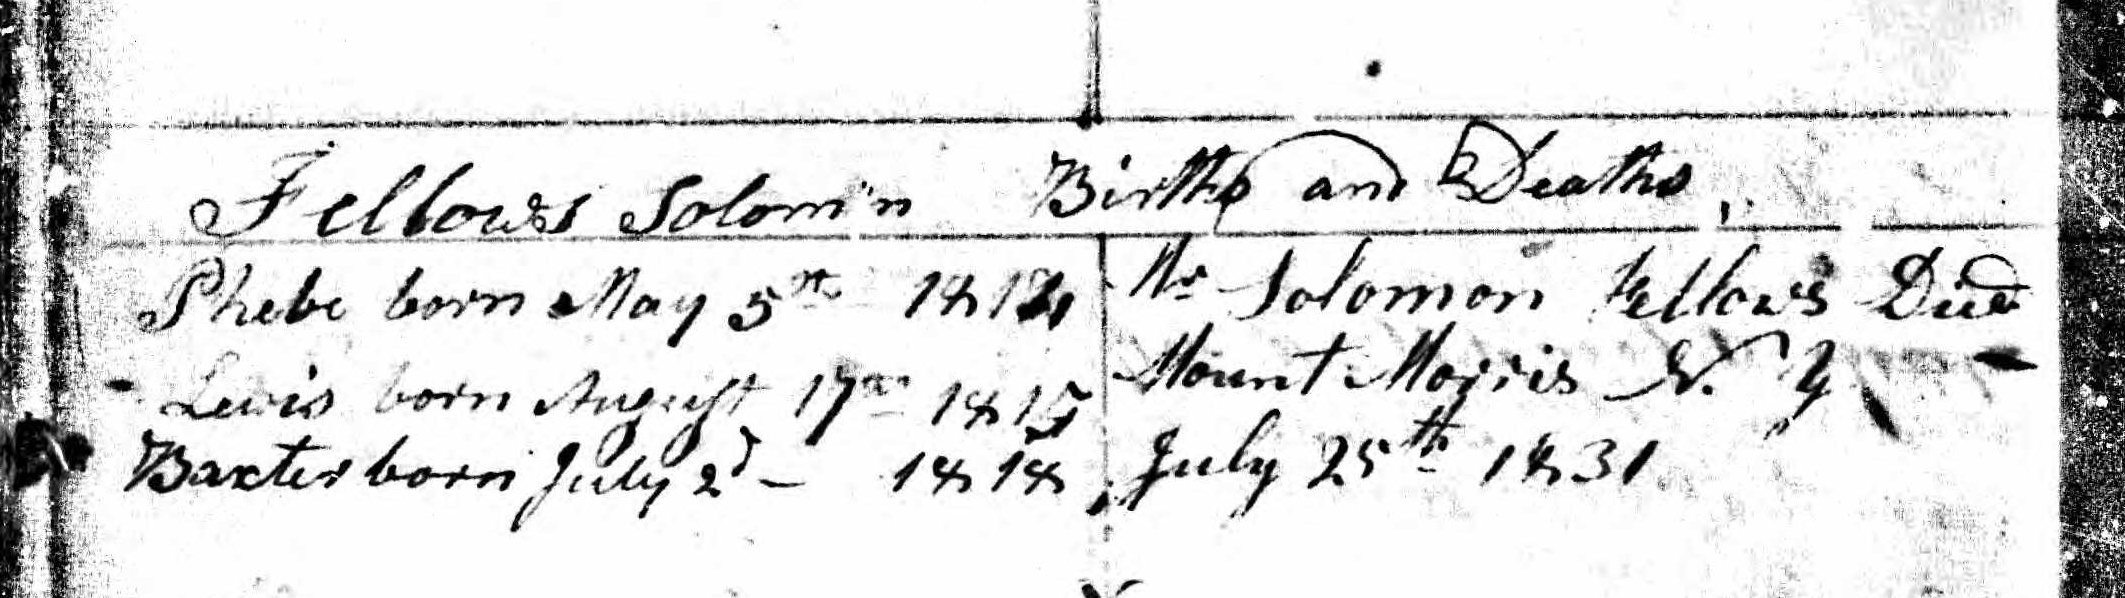 Fellows Solom'n Births and Deaths.
Phebe born May 5th 1814
Lewis born August 17th 1815
Baxter born July 2d - 1818
Mr Solomon Fellows Died
Mount Morris N. Y
July 25th 1831